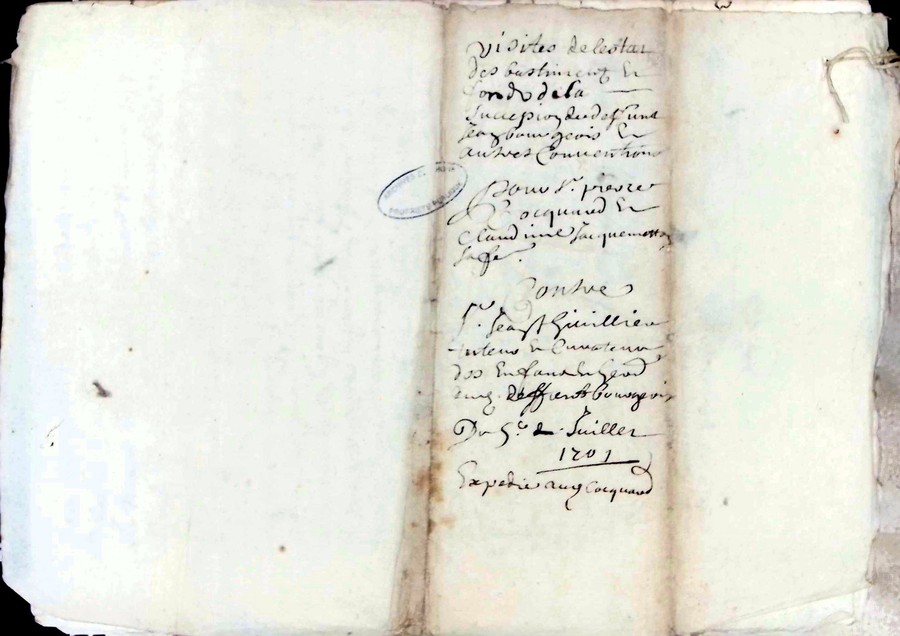 Visites de lestat
des bastiment et
fond de la
succession du deffunt
Jean bourgeois et
autres Conventions
Pour Sr. pierre
Cocquard et
Claudine Jacquemett
sa fe.
Contre
Sr. Jean Guillier
tuteur et Curateur
des Enfans et
dud. deffient bourgeois
Du 5e de Juillet
1701
Expedie aud Cocquard